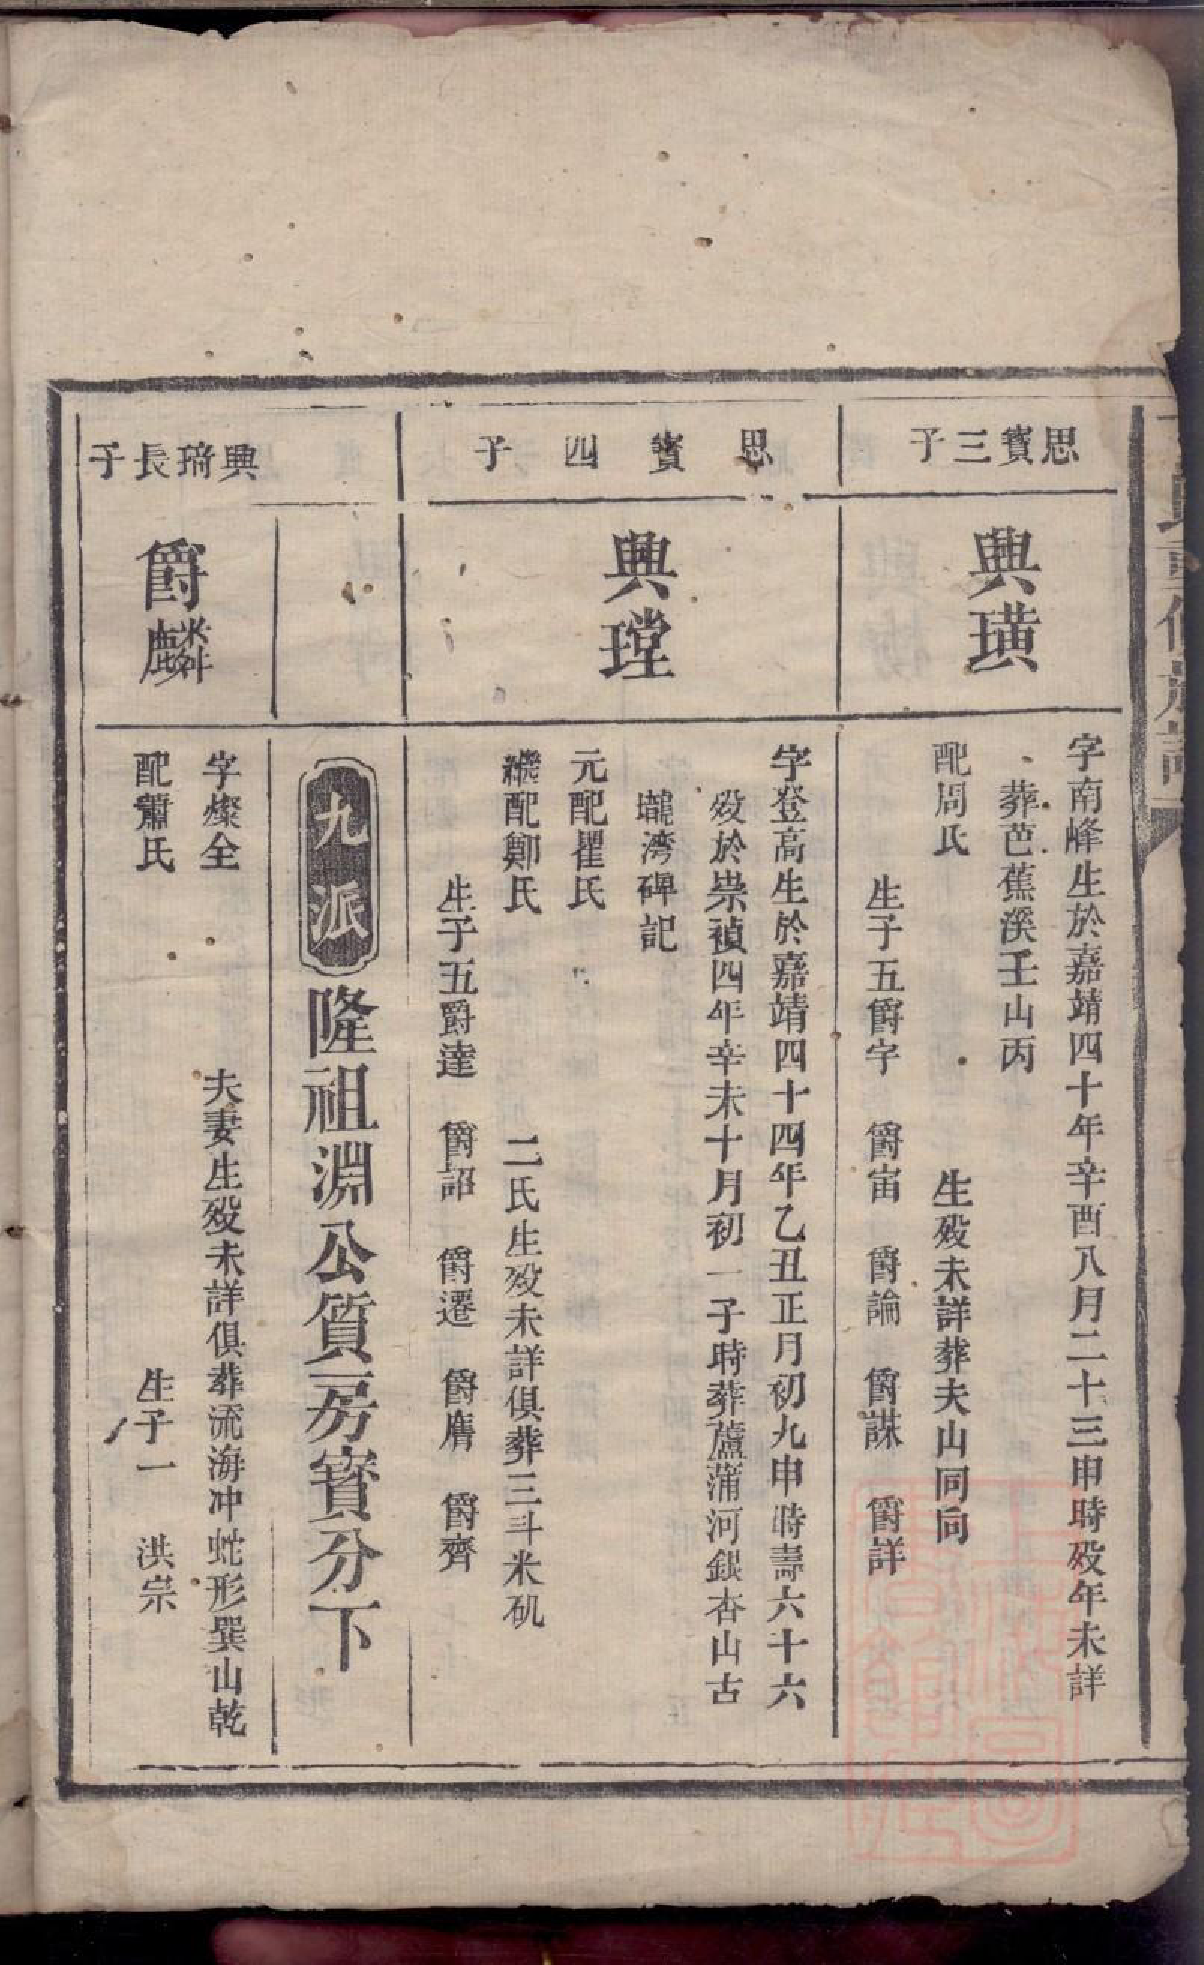 思寳三子
興璜
字南峰生於嘉靖四十年辛酉八月二十三申時殁年未詳
葬芭蕉溪壬山丙
配周氏
生殁未詳葬夫山同向
生子五爵字 爵宙 爵論 爵謀 爵詳
思寳四子
興瑝
字登高生於嘉靖四十四年乙丑正月初九申時壽六十六
殁於崇禎四年辛未十月初一子時葬蘆蒲河銀杏山古
壠湾碑記
元配瞿氏
繼配鄭氏
二氏生殁未詳俱葬三斗米矶
生子五爵達 爵詔 爵遷 爵膺 爵齊
九派隆祖淵公質房寳分下
興琦長子
爵麟
字燦全
夫妻生殁未詳俱葬流海冲虵形巽山乾
配蕭氏
生子一 洪宗